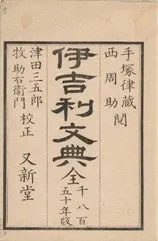 手塚律蔵 閲
西周助
伊吉利文典 全 千八百五十年版
津田三五郎 校正
牧助右衛門
又新堂